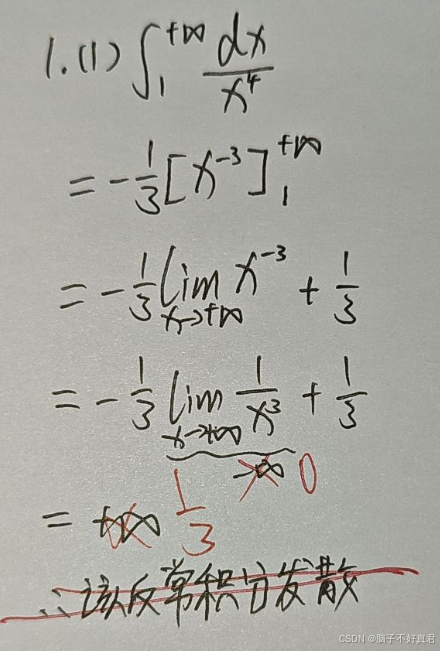 1.(1) ∫₁^{+∞} dx/x⁴
= -1/3 [x⁻³]₁^{+∞}
= -1/3 lim_{x→+∞} x⁻³ + 1/3
= -1/3 lim_{x→+∞} 1/x³ + 1/3
0
= +∞ 1/3
∴该反常积分发散
CSDN @脑子不好真君